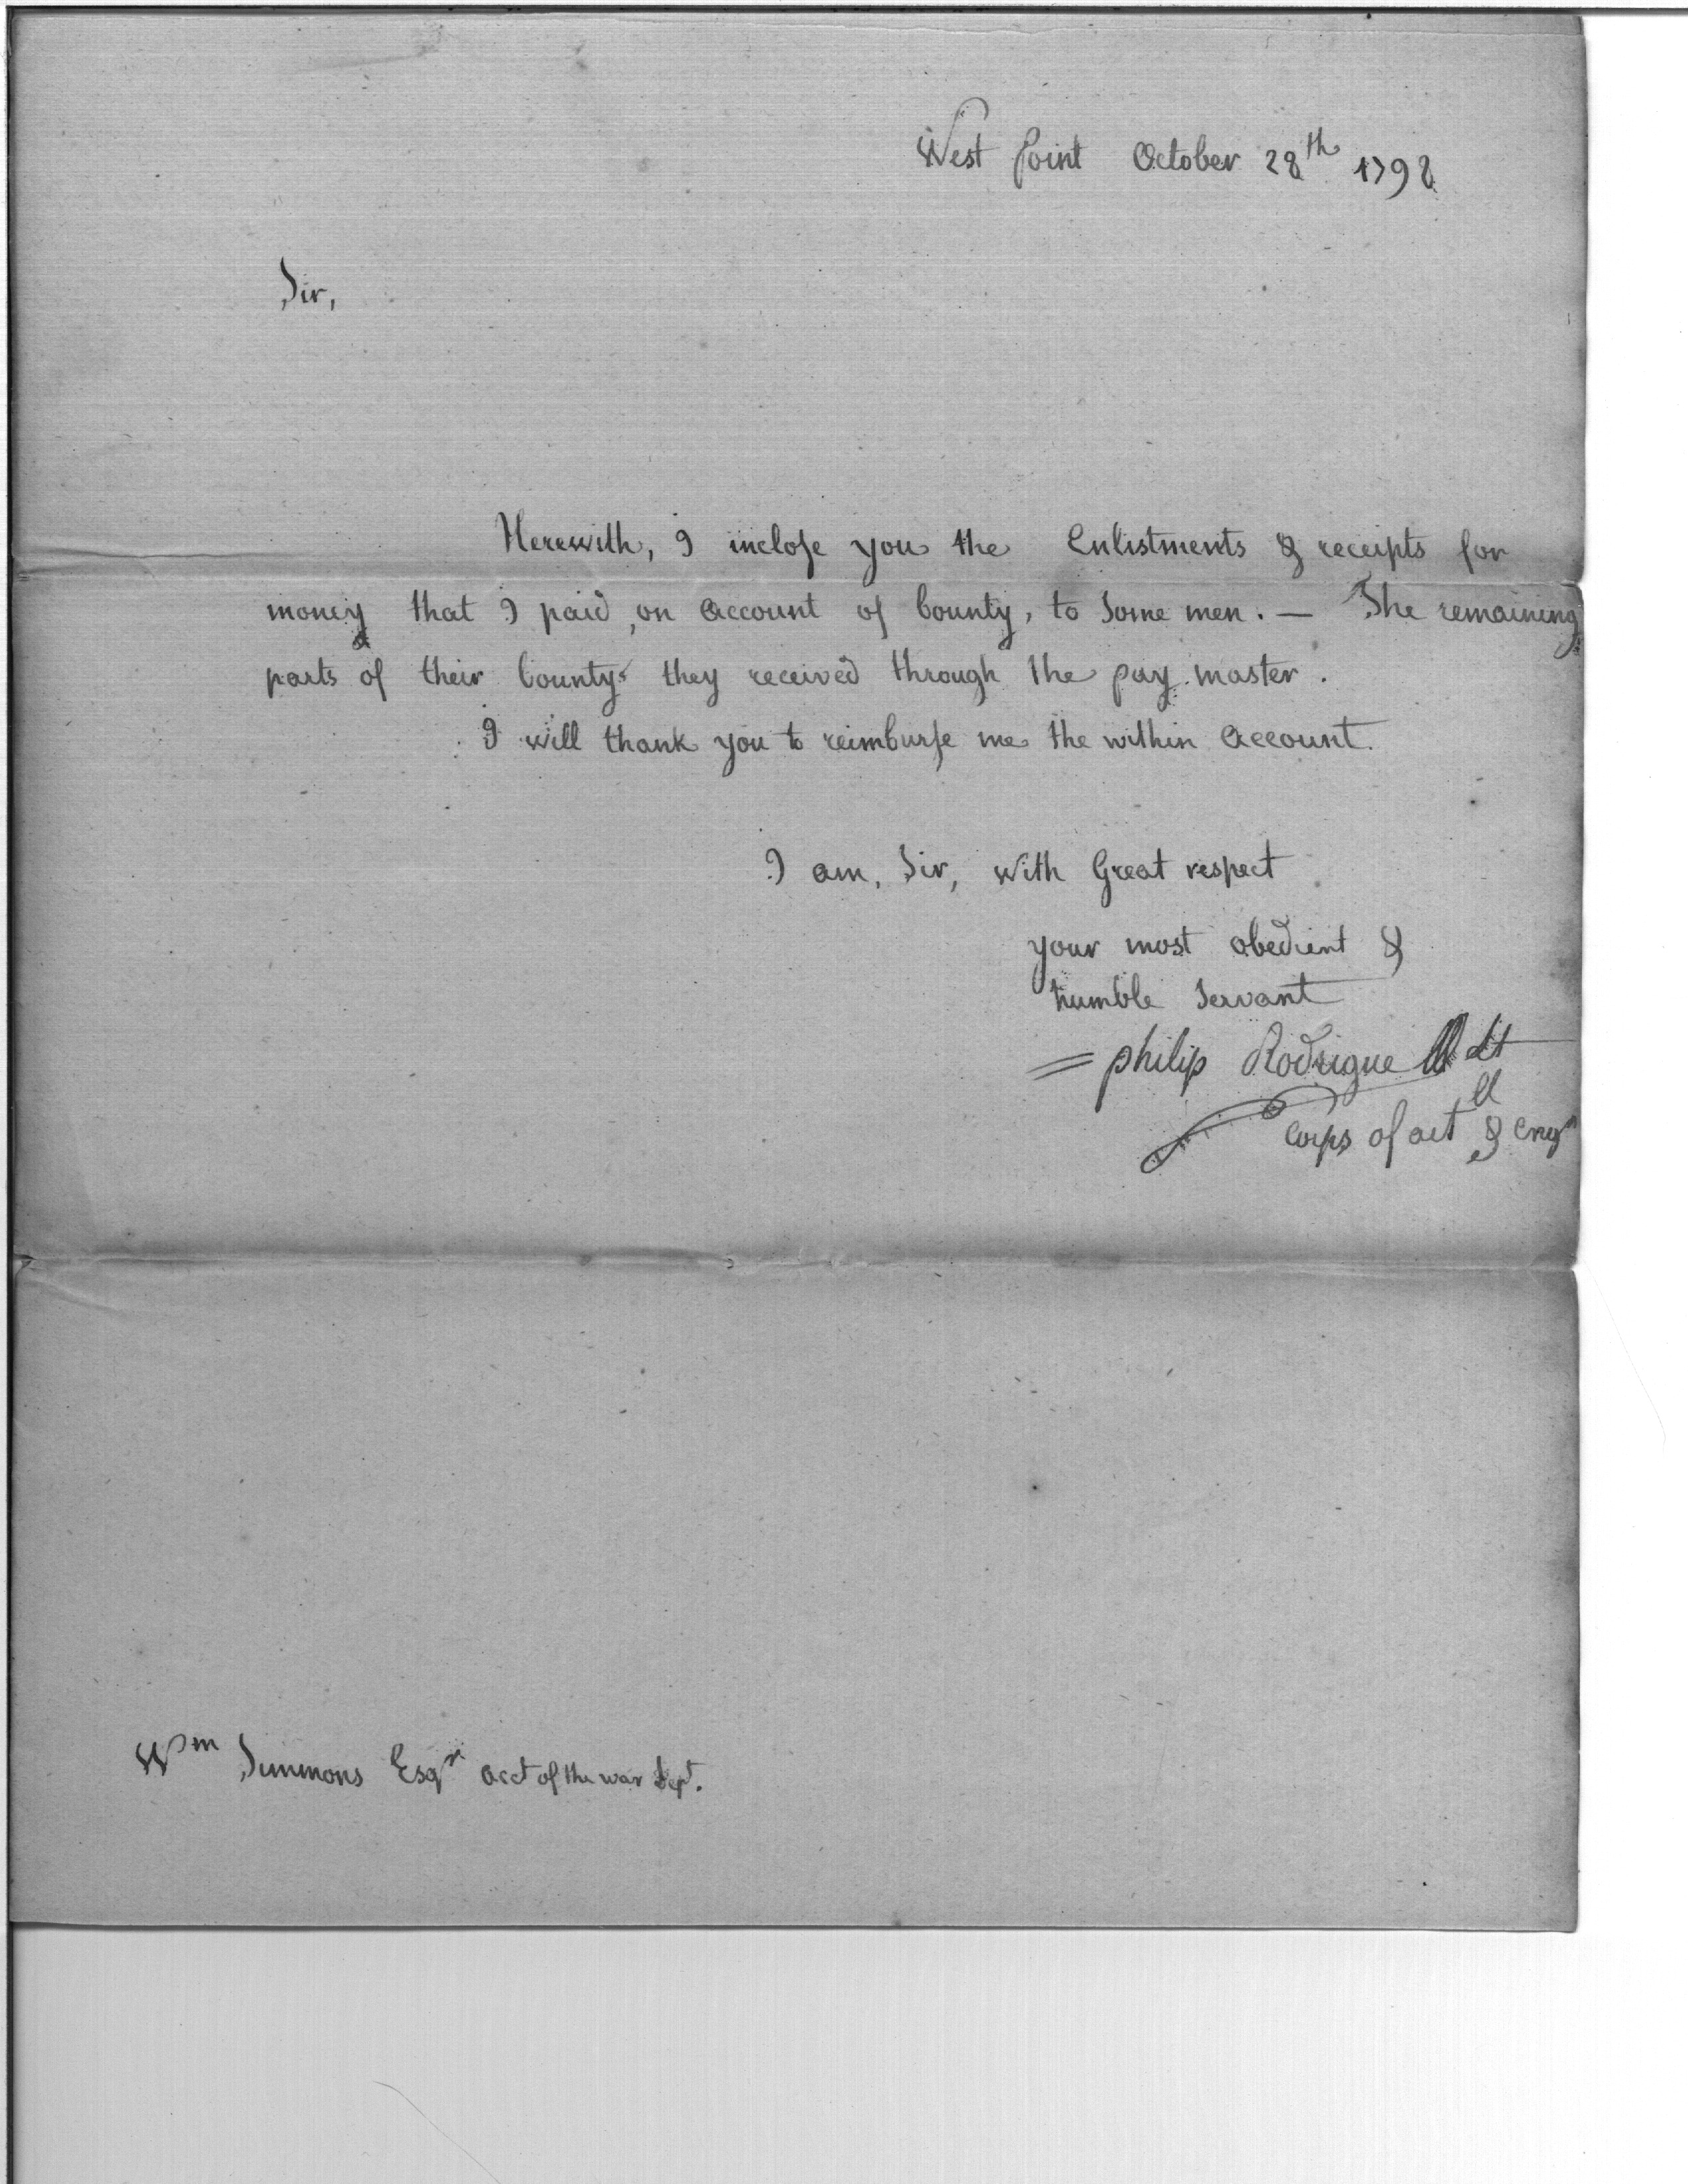 West Point October 28th 1798
Sir,
Herewith, I inclose you the Enlistments & receipts for
money that I paid, on Account of bounty, to Some men. — The remaining
parts of their bounty they received through the pay master.
I will thank you to reimburse me the within Account.
I am, Sir, with Great respect
your most obedient &
humble Servant
philip Rodrigue Lt
Corps of art & Engrs
Wm Simmons Esqr acct of the war Dept.